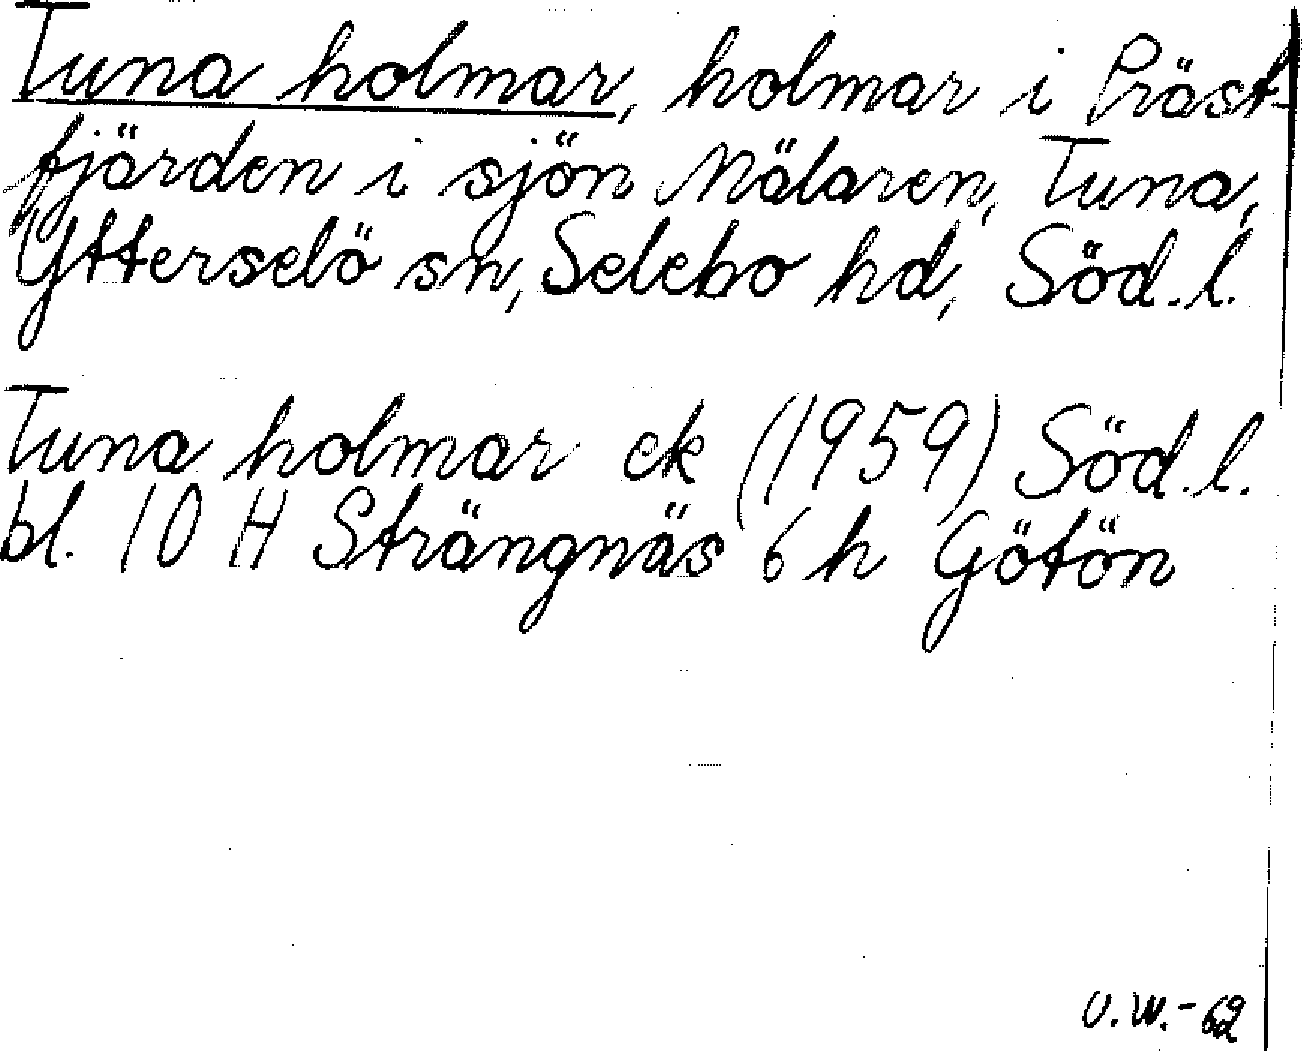 Tuna holmar, holmar i Präst-
fjärden i sjön Mälaren, Tuna,
Ytterselö sn, Selebo hd, Söd. l.
Tuna holmar ek (1959) Söd. l.
bl. 10 H Strängnäs 6 h Götön
U.W.-62